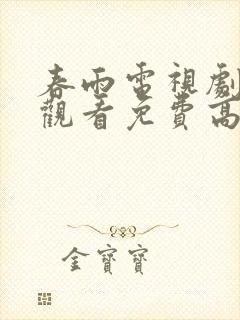 春雨電視劇
觀看免費高
金寶寶